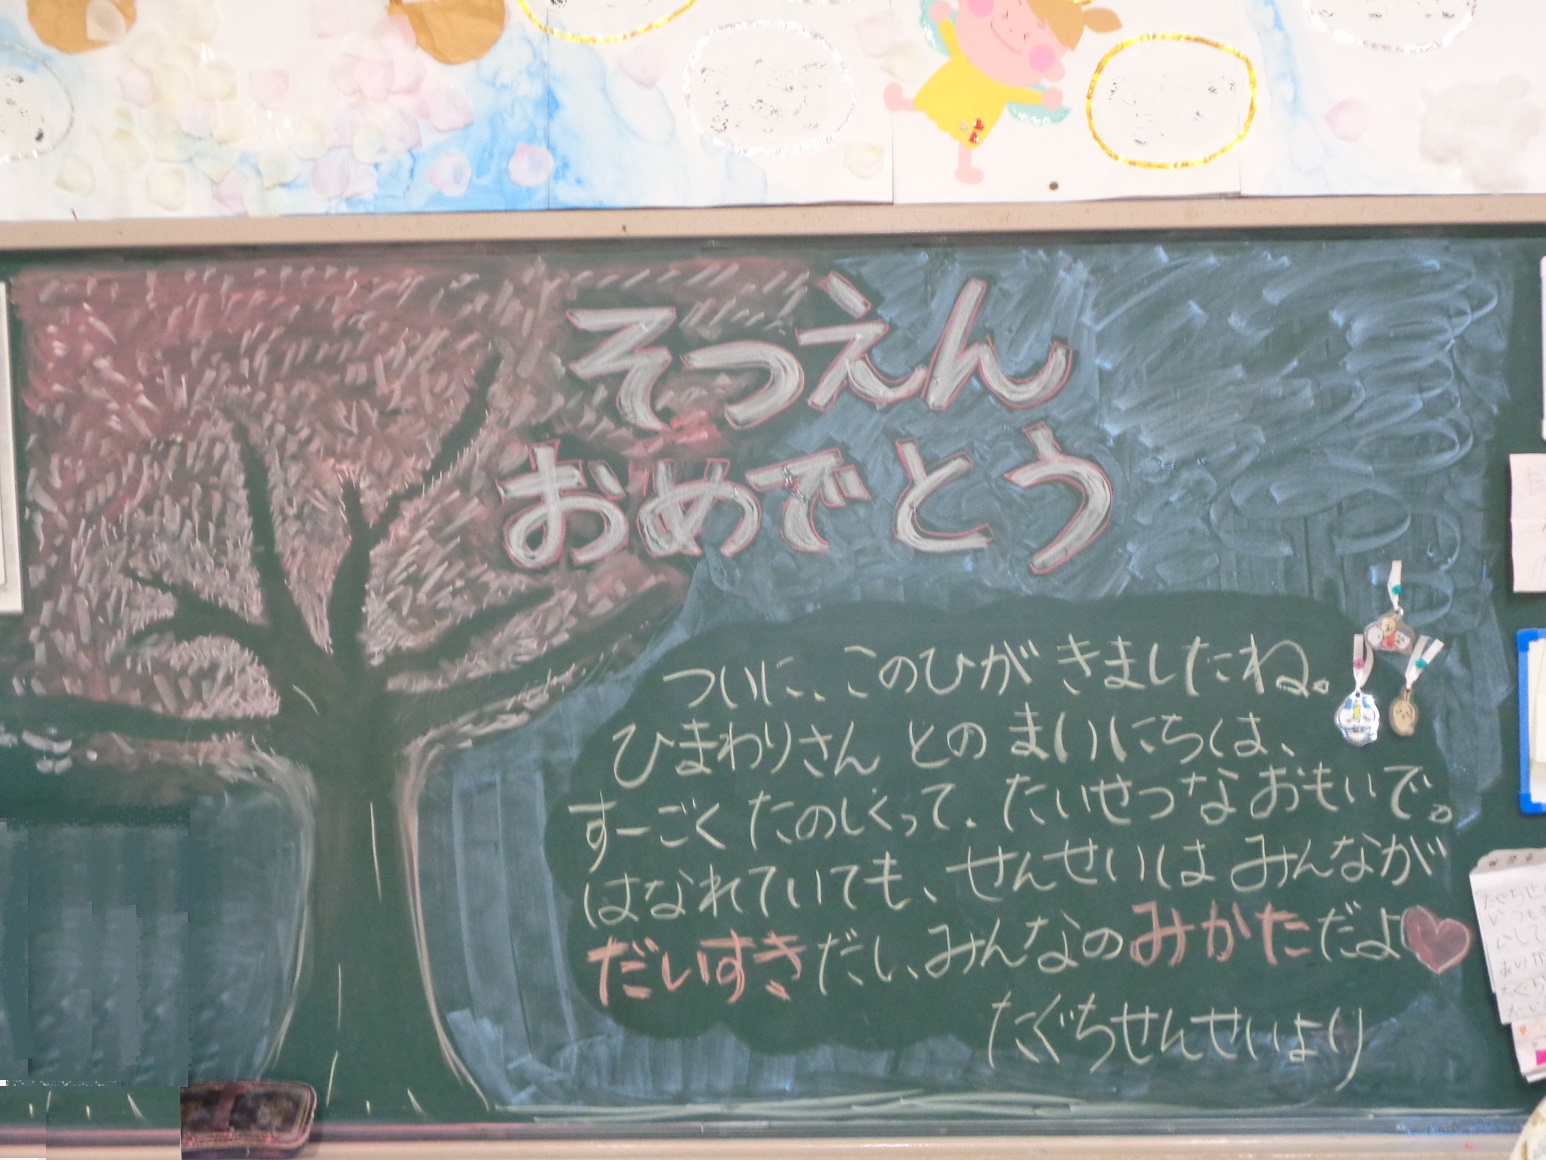 そつえん
おめでとう
ついに、このひが きましたね。
ひまわりさん との まいにちは、
すーごく たのしくって、たいせつな おもいで。
はなれていても、せんせいは みんなが
だいすきだし、みんなの みかただよ
たぐちせんせいより